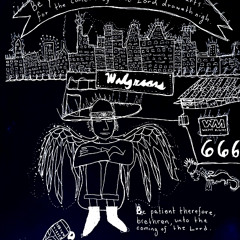 Be
for the coming of the Lord draweth nigh
Walgreens
666
Be patient therefore,
brethren, unto the
coming of the Lord.